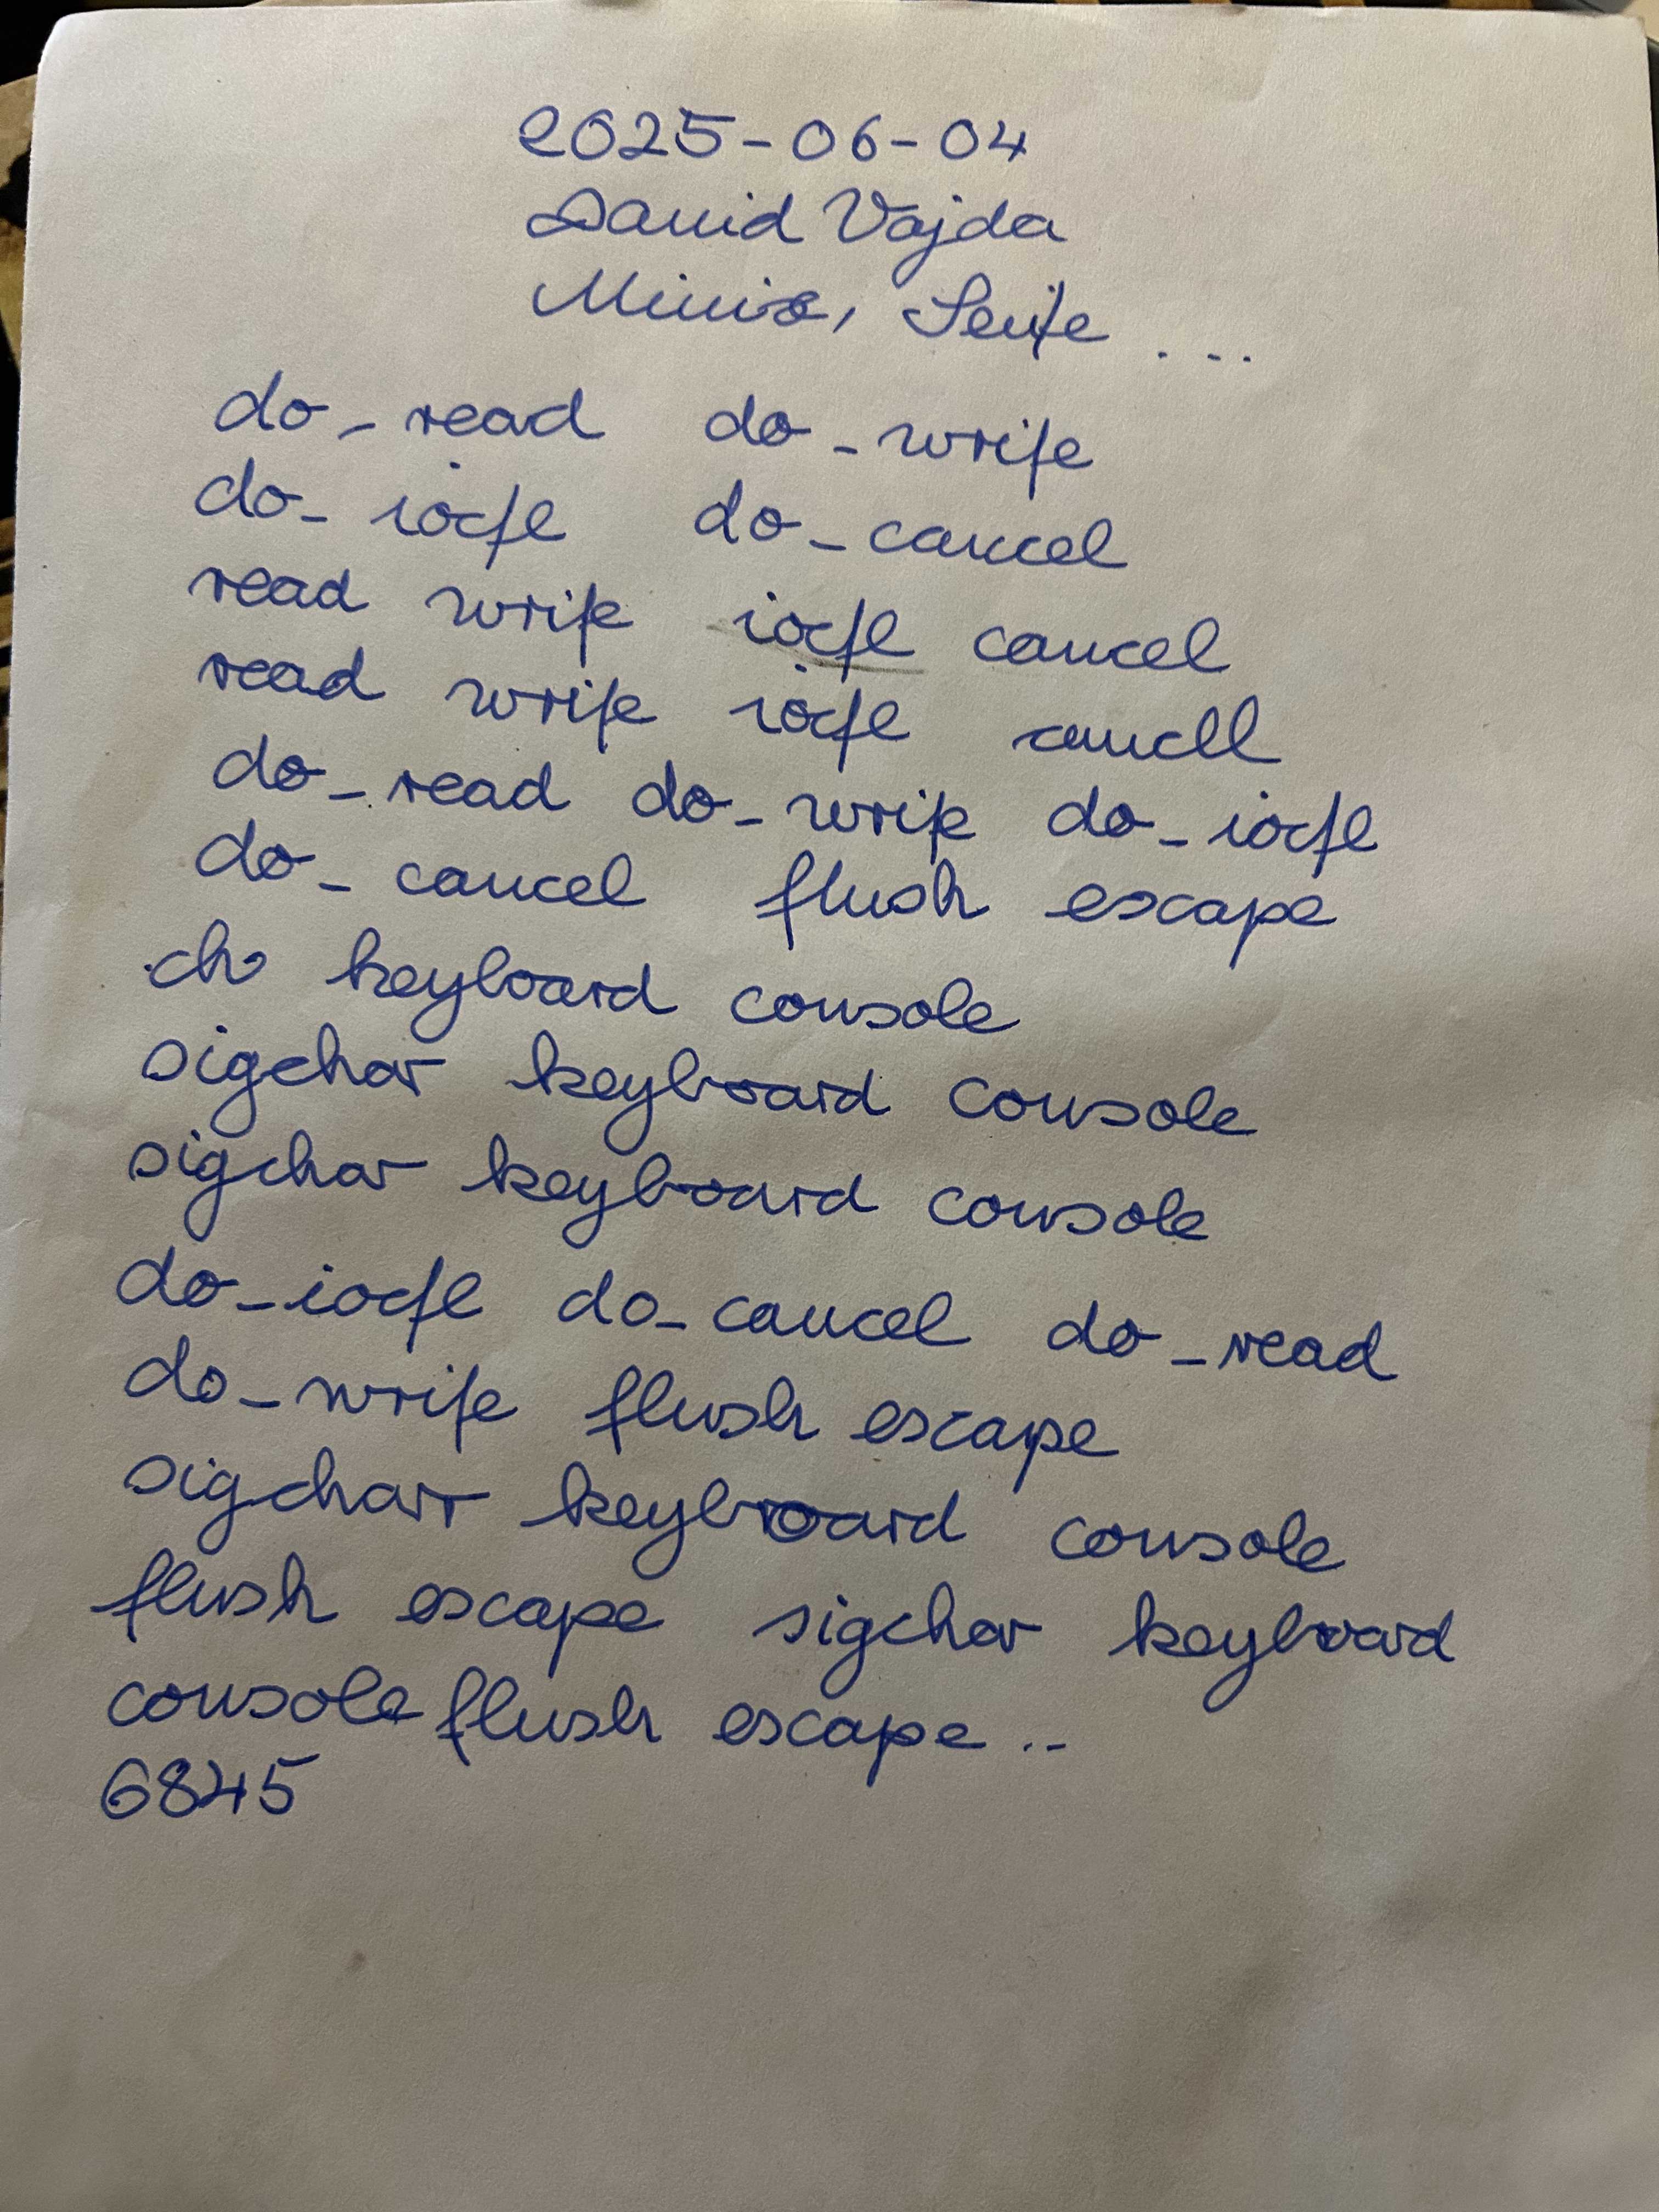 2025-06-04
David Vajda
Minix, Seite ...
do_read do_write
do_ioctl do_cancel
read write ioctl cancel
read write ioctl cancell
do_read do_write do_ioctl
do_cancel flush escape
ch keyboard console
sigchar keyboard console
sigchar keyboard console
do_ioctl do_cancel do_read
do_write flush escape
sigcharr keyboard console
flush escape sigchar keyboard
console flush escape ..
6845